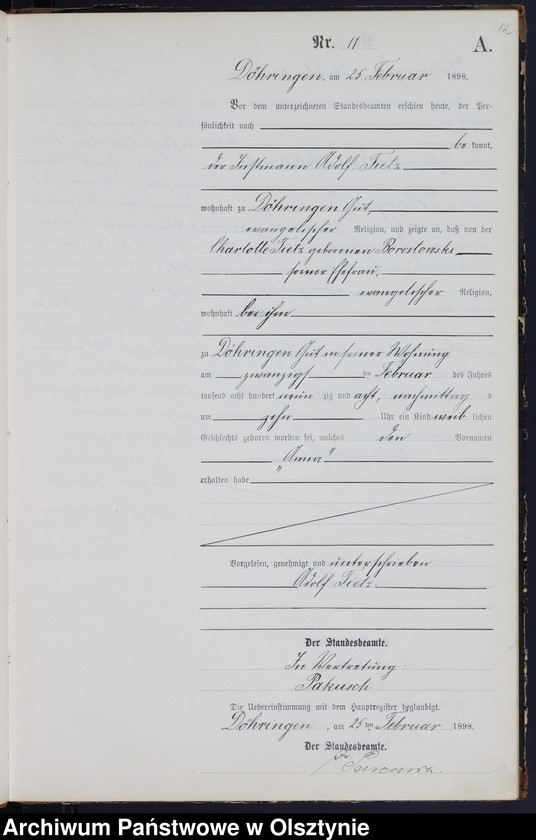 12
Nr. 11 A.
Döhringen, am 25 Februar 1898.
Vor dem unterzeichneten Standesbeamten erschien heute, der Per-
sönlichkeit nach
be kannt,
der Instmann Adolf Tietz
wohnhaft zu Döhringen Gut,
evangelischer Religion, und zeigte an, daß von der
Charlotte Tietz geborenen Borostowski
seiner Ehefrau,
evangelischer Religion,
wohnhaft bei ihm
zu Döhringen Gut in seiner Wohnung
am zwanzigsten Februar des Jahres
tausend acht hundert neun zig und acht, nachmittag s
um zehn Uhr ein Kind weib lichen
Geschlechts geboren worden sei, welches den Vornamen
„Anna"
erhalten habe
Vorgelesen, genehmigt und unterschrieben
Adolf Tietz
Der Standesbeamte.
In Vertretung
Pakusch
Die Uebereinstimmung mit dem Hauptregister beglaubigt.
Döhringen, am 25ten Februar 1898.
Der Standesbeamte.
Archiwum Państwowe w Olsztynie